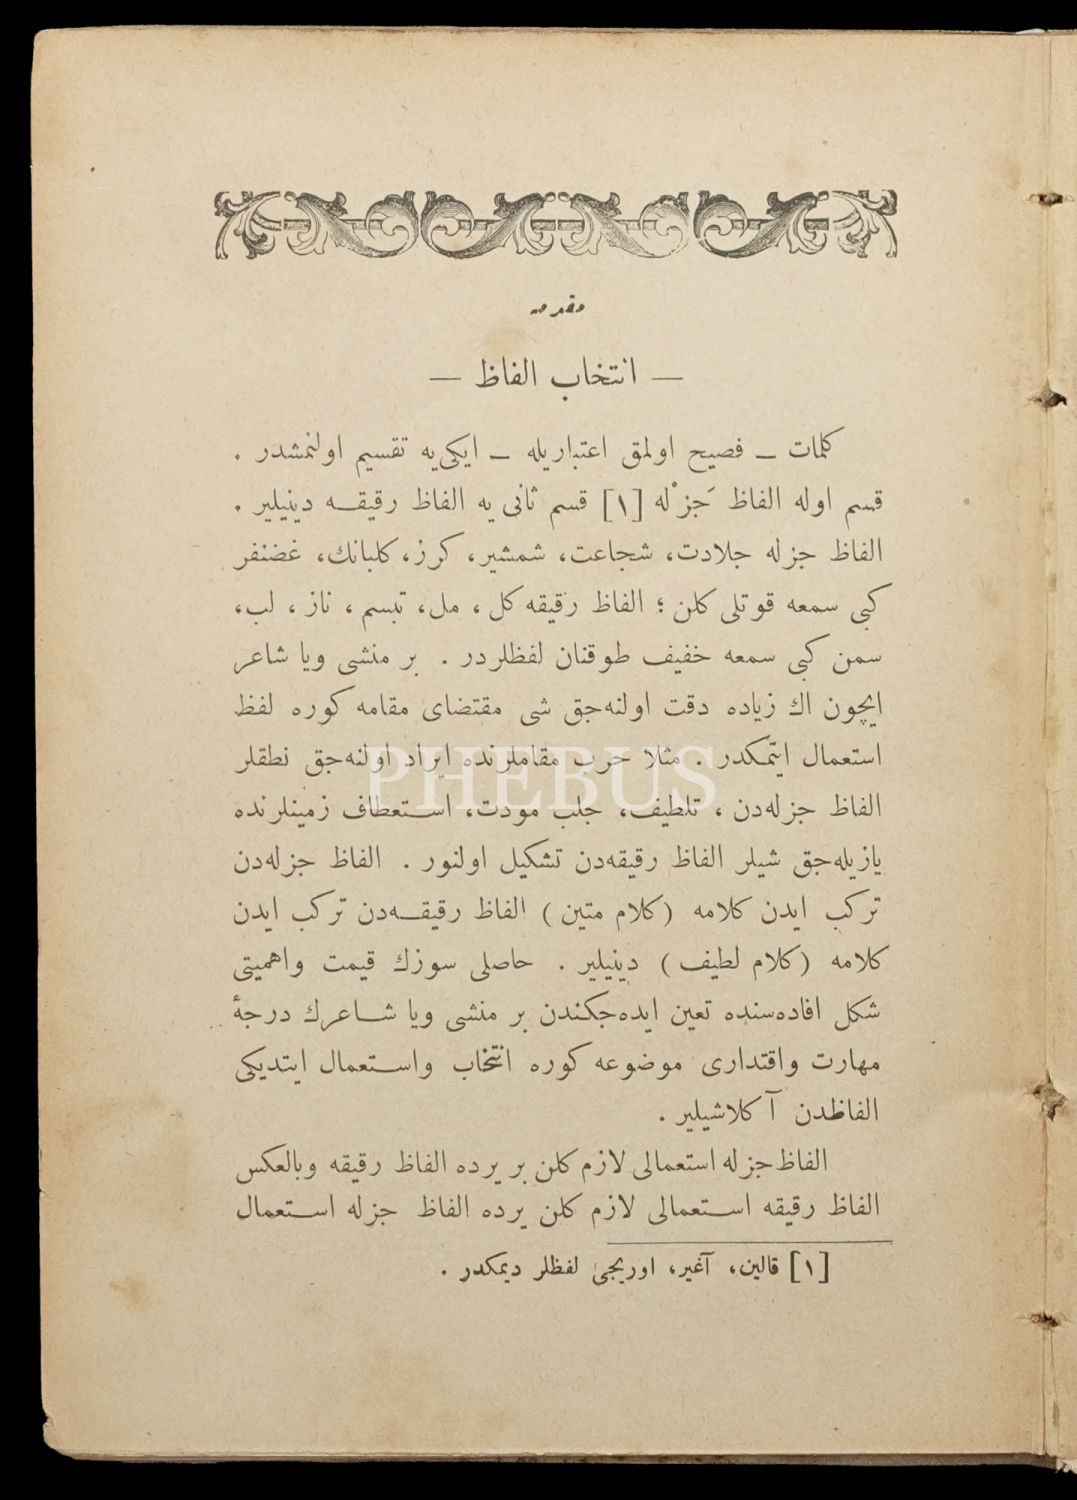 مقدمه
— انتخاب الفاظ —
كلمات — فصیح اولمق اعتباریله — ایكی‌یه تقسیم اولنمشدر .
قسم اوله الفاظ جَزْله [١] قسم ثانی یه الفاظ رقیقه دینیلیر .
الفاظ جزله جلادت، شجاعت، شمشیر، كرز، كلبانك، غضنفر
كبی سمعه قوتلی كلن ؛ الفاظ رقیقه كل ، مل، تبسم ، ناز ، لب،
سمن كبی سمعه خفیف طوقنان لفظلردر . بر منشی ویا شاعر
ایچون اك زیاده دقت اولنه‌جق شی مقتضای مقامه كوره لفظ
استعمال ایتمكدر . مثلا حرب مقاملرنده ایراد اولنه‌جق نطقلر
PHEBUS
الفاظ جزله‌دن ، تلطیف، جلب مودت، استعطاف زمینلرنده
یازیله‌جق شیلر الفاظ رقیقه‌دن تشكیل اولنور . الفاظ جزله‌دن
تركب ایدن كلامه (كلام متین) الفاظ رقیقه‌دن تركب ایدن
كلامه (كلام لطیف) دینیلیر . حاصلی سوزك قیمت واهمیتی
شكل افاده‌سنده تعین ایده‌جكندن بر منشی ویا شاعرك درجهٔ
مهارت واقتداری موضوعه كوره انتخاب واستعمال ایتدیكی
الفاظدن آكلاشیلیر .
الفاظ جزله استعمالی لازم كلن بر یرده الفاظ رقیقه وبالعكس
الفاظ رقیقه استعمالی لازم كلن یرده الفاظ جزله استعمال
[١] قالین، آغیر، اوریجی لفظلر دیمكدر .